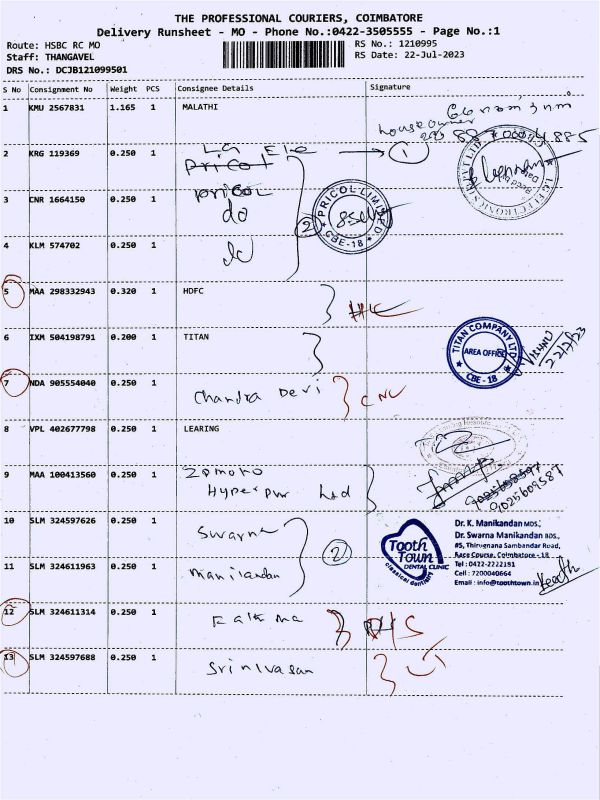 THE PROFESSIONAL COURIERS, COIMBATORE
Delivery Runsheet - MO - Phone No.:0422-3505555 - Page No.:1
Route: HSBC RC MO
RS No.: 1210995
Staff: THANGAVEL
RS Date: 22-Jul-2023
DRS No.: DCJB121099501
S No Consignment No Weight PCS Consignee Details Signature
1 KMU 2567831 1.165 1 MALATHI
house owner
2 KRG 119369 0.250 1 LG Ele 1
Pricol
3 CNR 1664150 0.250 1 pricol
do
2 PRICOL LIMITED CBE-18
4 KLM 574702 0.250 1
5 MAA 298332943 0.320 1 HDFC
6 IXM 504198791 0.200 1 TITAN
TITAN COMPANY LTD AREA OFFICE CBE - 18
22/7/23
7 NDA 905554040 0.250 1 Chandra Devi CNC
8 VPL 402677798 0.250 1 LEARING
9 MAA 100413560 0.250 1 Zomato
Hyperpur Ltd
9025609587
10 SLM 324597626 0.250 1 Swarna
2
11 SLM 324611963 0.250 1 Manikandan
Tooth Town
DENTAL CLINIC
classical dentistry
Dr. K. Manikandan MDS.,
Dr. Swarna Manikandan BDS.,
#5, Thirugnana Sambandar Road,
Race Course, Coimbatore - 18
Tel : 0422-2222191
Cell : 7200040664
Email : info@toothtown.in
12 SLM 324611314 0.250 1
13 SLM 324597688 0.250 1 Srinivasan